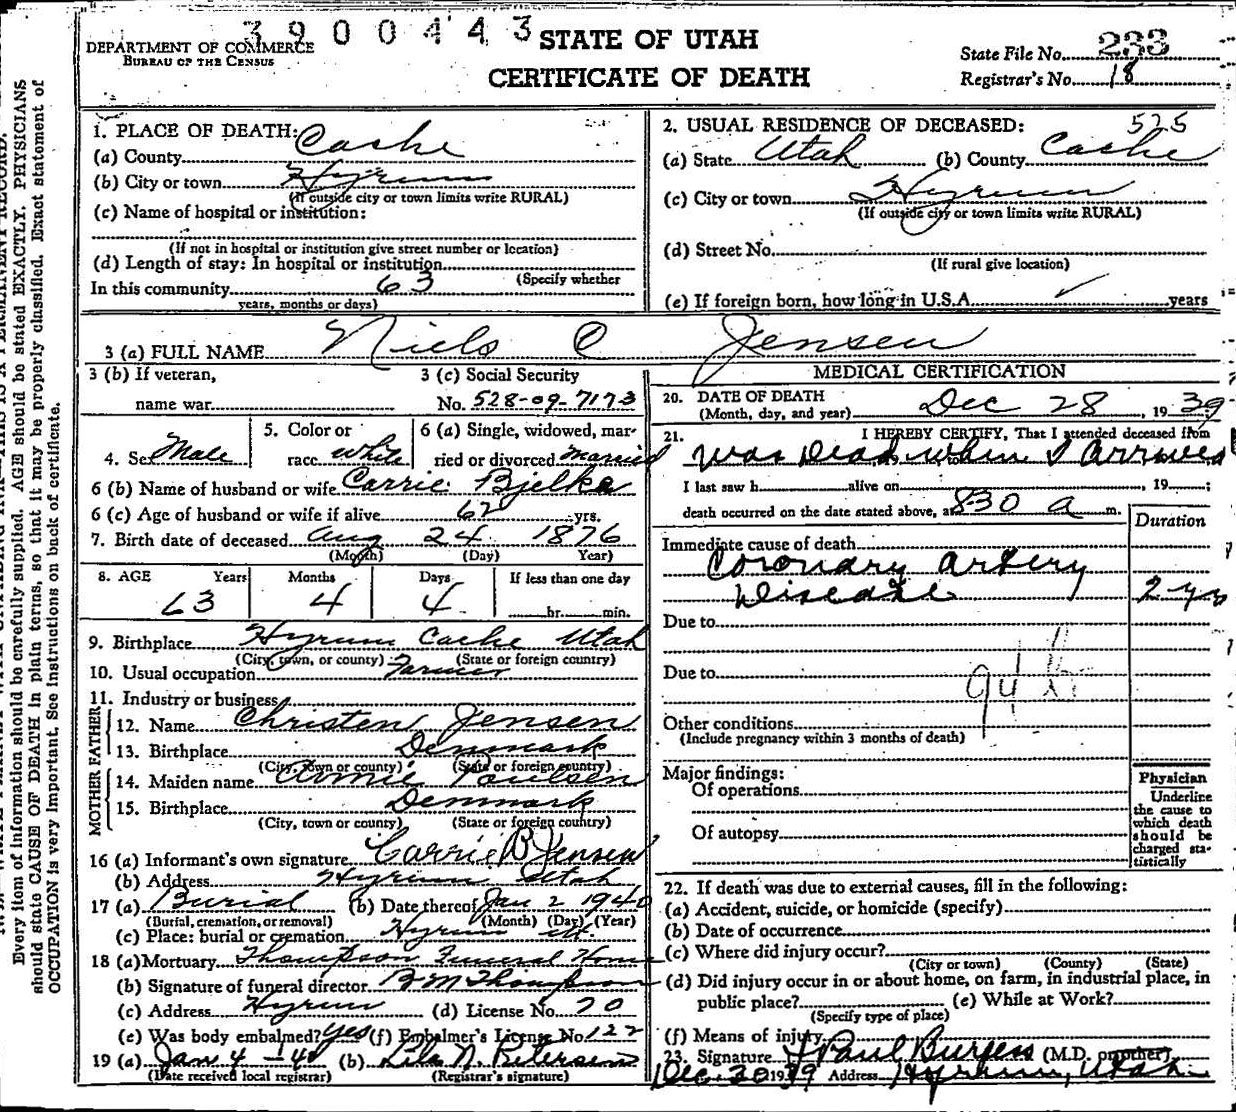 3900443
DEPARTMENT OF COMMERCE
BUREAU OF THE CENSUS
STATE OF UTAH
CERTIFICATE OF DEATH
State File No. 233
Registrar's No. 18
Every item of information should be carefully supplied. AGE should be stated EXACTLY. PHYSICIANS
should state CAUSE OF DEATH in plain terms, so that it may be properly classified. Exact statement of
OCCUPATION is very important. See instructions on back of certificate.
1. PLACE OF DEATH:
(a) County Cache
(b) City or town Hyrum
(If outside city or town limits write RURAL)
(c) Name of hospital or institution:
(If not in hospital or institution give street number or location)
(d) Length of stay: In hospital or institution
(Specify whether
In this community 63
years, months or days)
2. USUAL RESIDENCE OF DECEASED: 525
(a) State Utah (b) County Cache
(c) City or town Hyrum
(If outside city or town limits write RURAL)
(d) Street No.
(If rural give location)
(e) If foreign born, how long in U.S.A. years
3 (a) FULL NAME Niels C Jensen
3 (b) If veteran,
name war
3 (c) Social Security
No. 528-09-7173
4. Sex Male
5. Color or
race white
6 (a) Single, widowed, mar-
ried or divorced married
6 (b) Name of husband or wife Carrie Bjelke
6 (c) Age of husband or wife if alive 62 yrs.
7. Birth date of deceased Aug 24 1876
(Month) (Day) Year)
8. AGE Years Months Days If less than one day
63 4 4 hr. min.
9. Birthplace Hyrum Cache Utah
(City, town, or county) (State or foreign country)
10. Usual occupation Farmer
11. Industry or business
FATHER
12. Name Christen Jensen
13. Birthplace Denmark
(City, town or county) (State or foreign country)
MOTHER
14. Maiden name Poulsen
15. Birthplace Denmark
(City, town or county) (State or foreign country)
16 (a) Informant's own signature Carrie B Jensen
(b) Address Hyrum Utah
17 (a) Burial (b) Date thereof Jan 2 1940
(Burial, cremation, or removal) (Month) (Day) (Year)
(c) Place: burial or cremation Hyrum Ut.
18 (a) Mortuary Thompson Funeral Home
(b) Signature of funeral director B M Thompson
(c) Address Hyrum (d) License No. 70
(e) Was body embalmed? Yes (f) Embalmer's License No. 122
19 (a) Jan 4 - 40 (b) Lila N. Petersen
(Date received local registrar) (Registrar's signature)
MEDICAL CERTIFICATION
20. DATE OF DEATH
(Month, day, and year) Dec 28, 1939
21. I HEREBY CERTIFY, That I attended deceased from
was Dead when I Arrived
I last saw h alive on , 19 ;
death occurred on the date stated above, at 830 a m.
Duration
Immediate cause of death
Coronary artery
Disease 2 yrs
Due to
Due to
94
Other conditions
(Include pregnancy within 3 months of death)
Major findings:
Of operations
Of autopsy
Physician
Underline
the cause to
which death
should be
charged sta-
tistically
22. If death was due to external causes, fill in the following:
(a) Accident, suicide, or homicide (specify)
(b) Date of occurrence
(c) Where did injury occur?
(City or town) (County) (State)
(d) Did injury occur in or about home, on farm, in industrial place, in
public place? (e) While at Work?
(Specify type of place)
(f) Means of injury
23. Signature J Paul Burgess (M.D. or other)
Dec. 30 1939 Address Hyrum, Utah